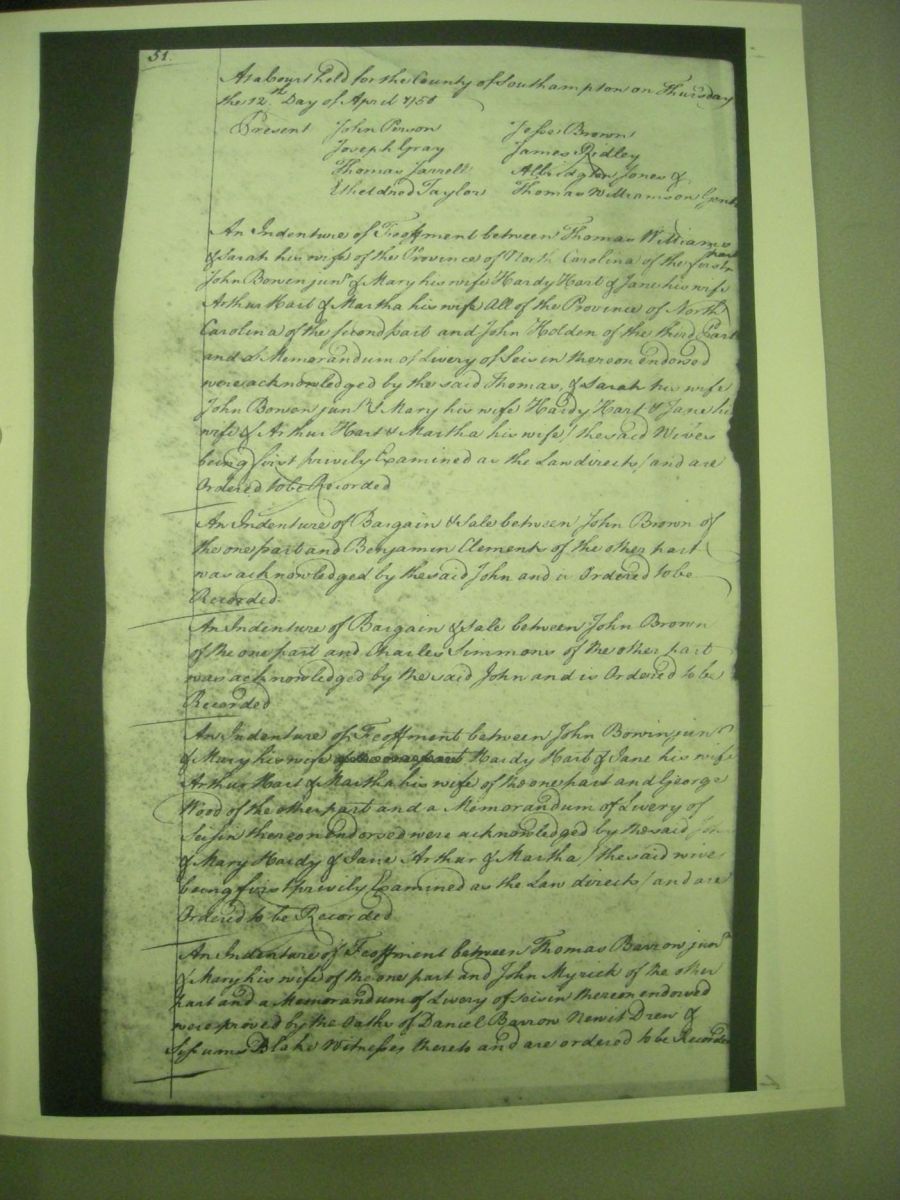 51.
At a Court held for the County of Southampton on Thursday
the 12th Day of April 1750
Present John Person Jesse Brown
Joseph Gray James Ridley
Thomas Jarrell Albridgton Jones &
Etheldred Taylor Thomas Williamson Gent
An Indenture of Feoffment between Thomas Williams
& Sarah his wife of the Province of North Carolina of the first part
John Bowen junr & Mary his wife Hardy Hart & Jane his wife
Arthur Hart & Martha his wife all of the Province of North
Carolina of the second part and John Holden of the third Part
and a Memorandum of Livery of Seisin thereon endorsed
were acknowledged by the said Thomas, & Sarah his wife
John Bowen junr & Mary his wife Hardy Hart & Jane his
wife & Arthur Hart & Martha his wife / the said Wives
being first privily Examined as the Law directs / and are
Ordered to be Recorded
An Indenture of Bargain & Sale between John Brown of
the one part and Benjamin Clements of the other part
was acknowledged by the said John and is Ordered to be
Recorded.
An Indenture of Bargain & Sale between John Brown
of the one part and Charles Simmons of the other part
was acknowledged by the said John and is Ordered to be
Recorded
An Indenture of Feoffment between John Bowin junr
& Mary his wife Hardy Hart & Jane his wife
Arthur Hart & Martha his wife of the one part and George
Wood of the other part and a Memorandum of Livery of
Seisin thereon endorsed were acknowledged by the said John
& Mary Hardy & Jane Arthur & Martha / the said wives
being first privily Examined as the Law directs / and are
Ordered to be Recorded
An Indenture of Feoffment between Thomas Barrow junr
& Mary his wife of the one part and John Myrick of the other
part and a Memorandum of Livery of Seisin thereon endorsed
were proved by the Oaths of Daniel Barrow Newit Drew &
Blake Witnesses thereto and are ordered to be Recorded